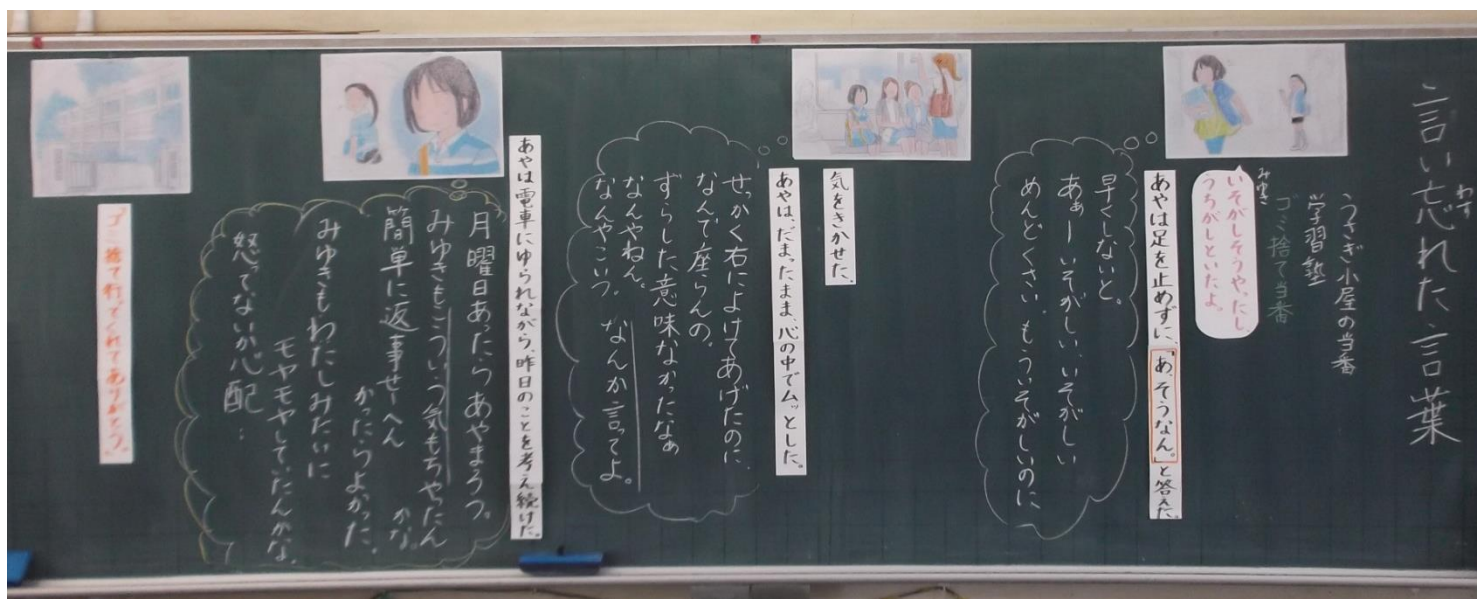 言い忘れた言葉
わす
うさぎ小屋の当番
学習塾
ゴミ捨て当番
みゆき
いそがしそうやったし、
うちがしといたよ。
あやは足を止めずに、「あ、そうなん。」と答えた。
早くしないと。
あぁー いそがしい、いそがしい
めんどくさい。もういそがしいのに
気をきかせた。
あやは、だまったまま、心の中でムッとした。
せっかく右によけてあげたのに、
なんで座らんの。
ずらした意味なかったなぁ
なんやねん。
なんやこいつ。なんか言ってよ。
あやは電車にゆられながら、昨日のことを考え続けた。
月曜日あったらあやまろう。
みゆきもこういう気もちやったん
かな。
簡単に返事せーへん
かったらよかった。
みゆきもわたしみたいに
モヤモヤしていたんかな。
怒ってないか心配…
ゴミ捨て行ってくれてありがとう。